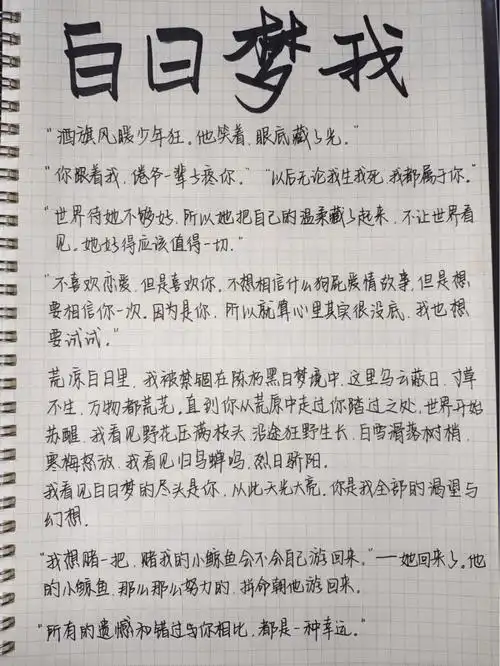 白日梦我
“酒旗风暖少年狂。他笑着,眼底藏了光。”
“你跟着我,倦爷一辈了疼你。”“以后无论我生我死,我都属于你。”
“世界待她不够好,所以她把自己的温柔藏了起来,不让世界看
见。她好得应该值得一切。”
“不喜欢恋爱,但是喜欢你。不想相信什么狗屁爱情故事,但是想
要相信你一次。因为是你,所以就算心里其实很没底,我也想
要试试。”
荒凉白日里,我被禁锢在陈朽黑白梦境中,这里乌云蔽日,寸草
不生,万物都荒芜。直到你从荒原中走过你踏过之处,世界开始
苏醒,我看见野花压满枝头,沿途狂野生长,白雪滑落树梢,
寒梅怒放,我看见归鸟蝉鸣,烈日骄阳。
我看见白日梦的尽头是你,从此天光大亮,你是我全部的渴望与
幻想。
“我想赌一把,赌我的小鲸鱼会不会自己游回来。”——她回来了。他
的小鲸鱼,那么那么努力的,拼命朝他游回来。
“所有的遗憾和错过与你相比,都是一种幸运。”